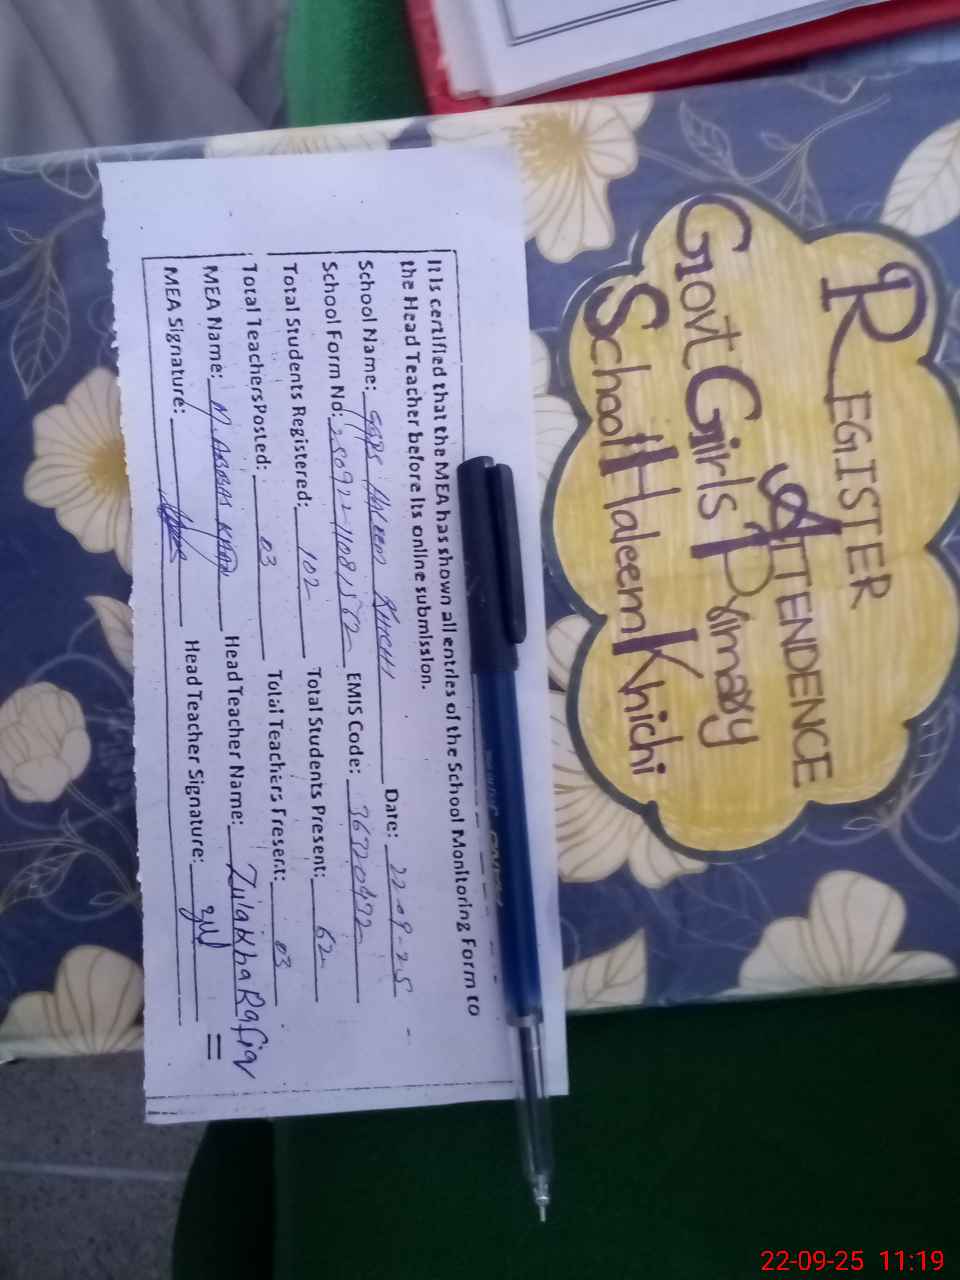 REGISTER
ATTENDENCE
Govt Girls Primary
School Haleem Khichi
It is certified that the MEA has shown all entries of the School Monitoring Form to
the Head Teacher before its online submission.
School Name: GGPS Haleem KHICHI Date: 22-09-25
School Form No: EMIS Code: 36720472
Total Students Registered: 102 Total Students Present: 62
Total Teachers Posted: 03 Total Teachers Present: 03
MEA Name: M. ABBAS KHAN Head Teacher Name: Zulakha Rafiq
MEA Signature: Head Teacher Signature:
22-09-25 11:19